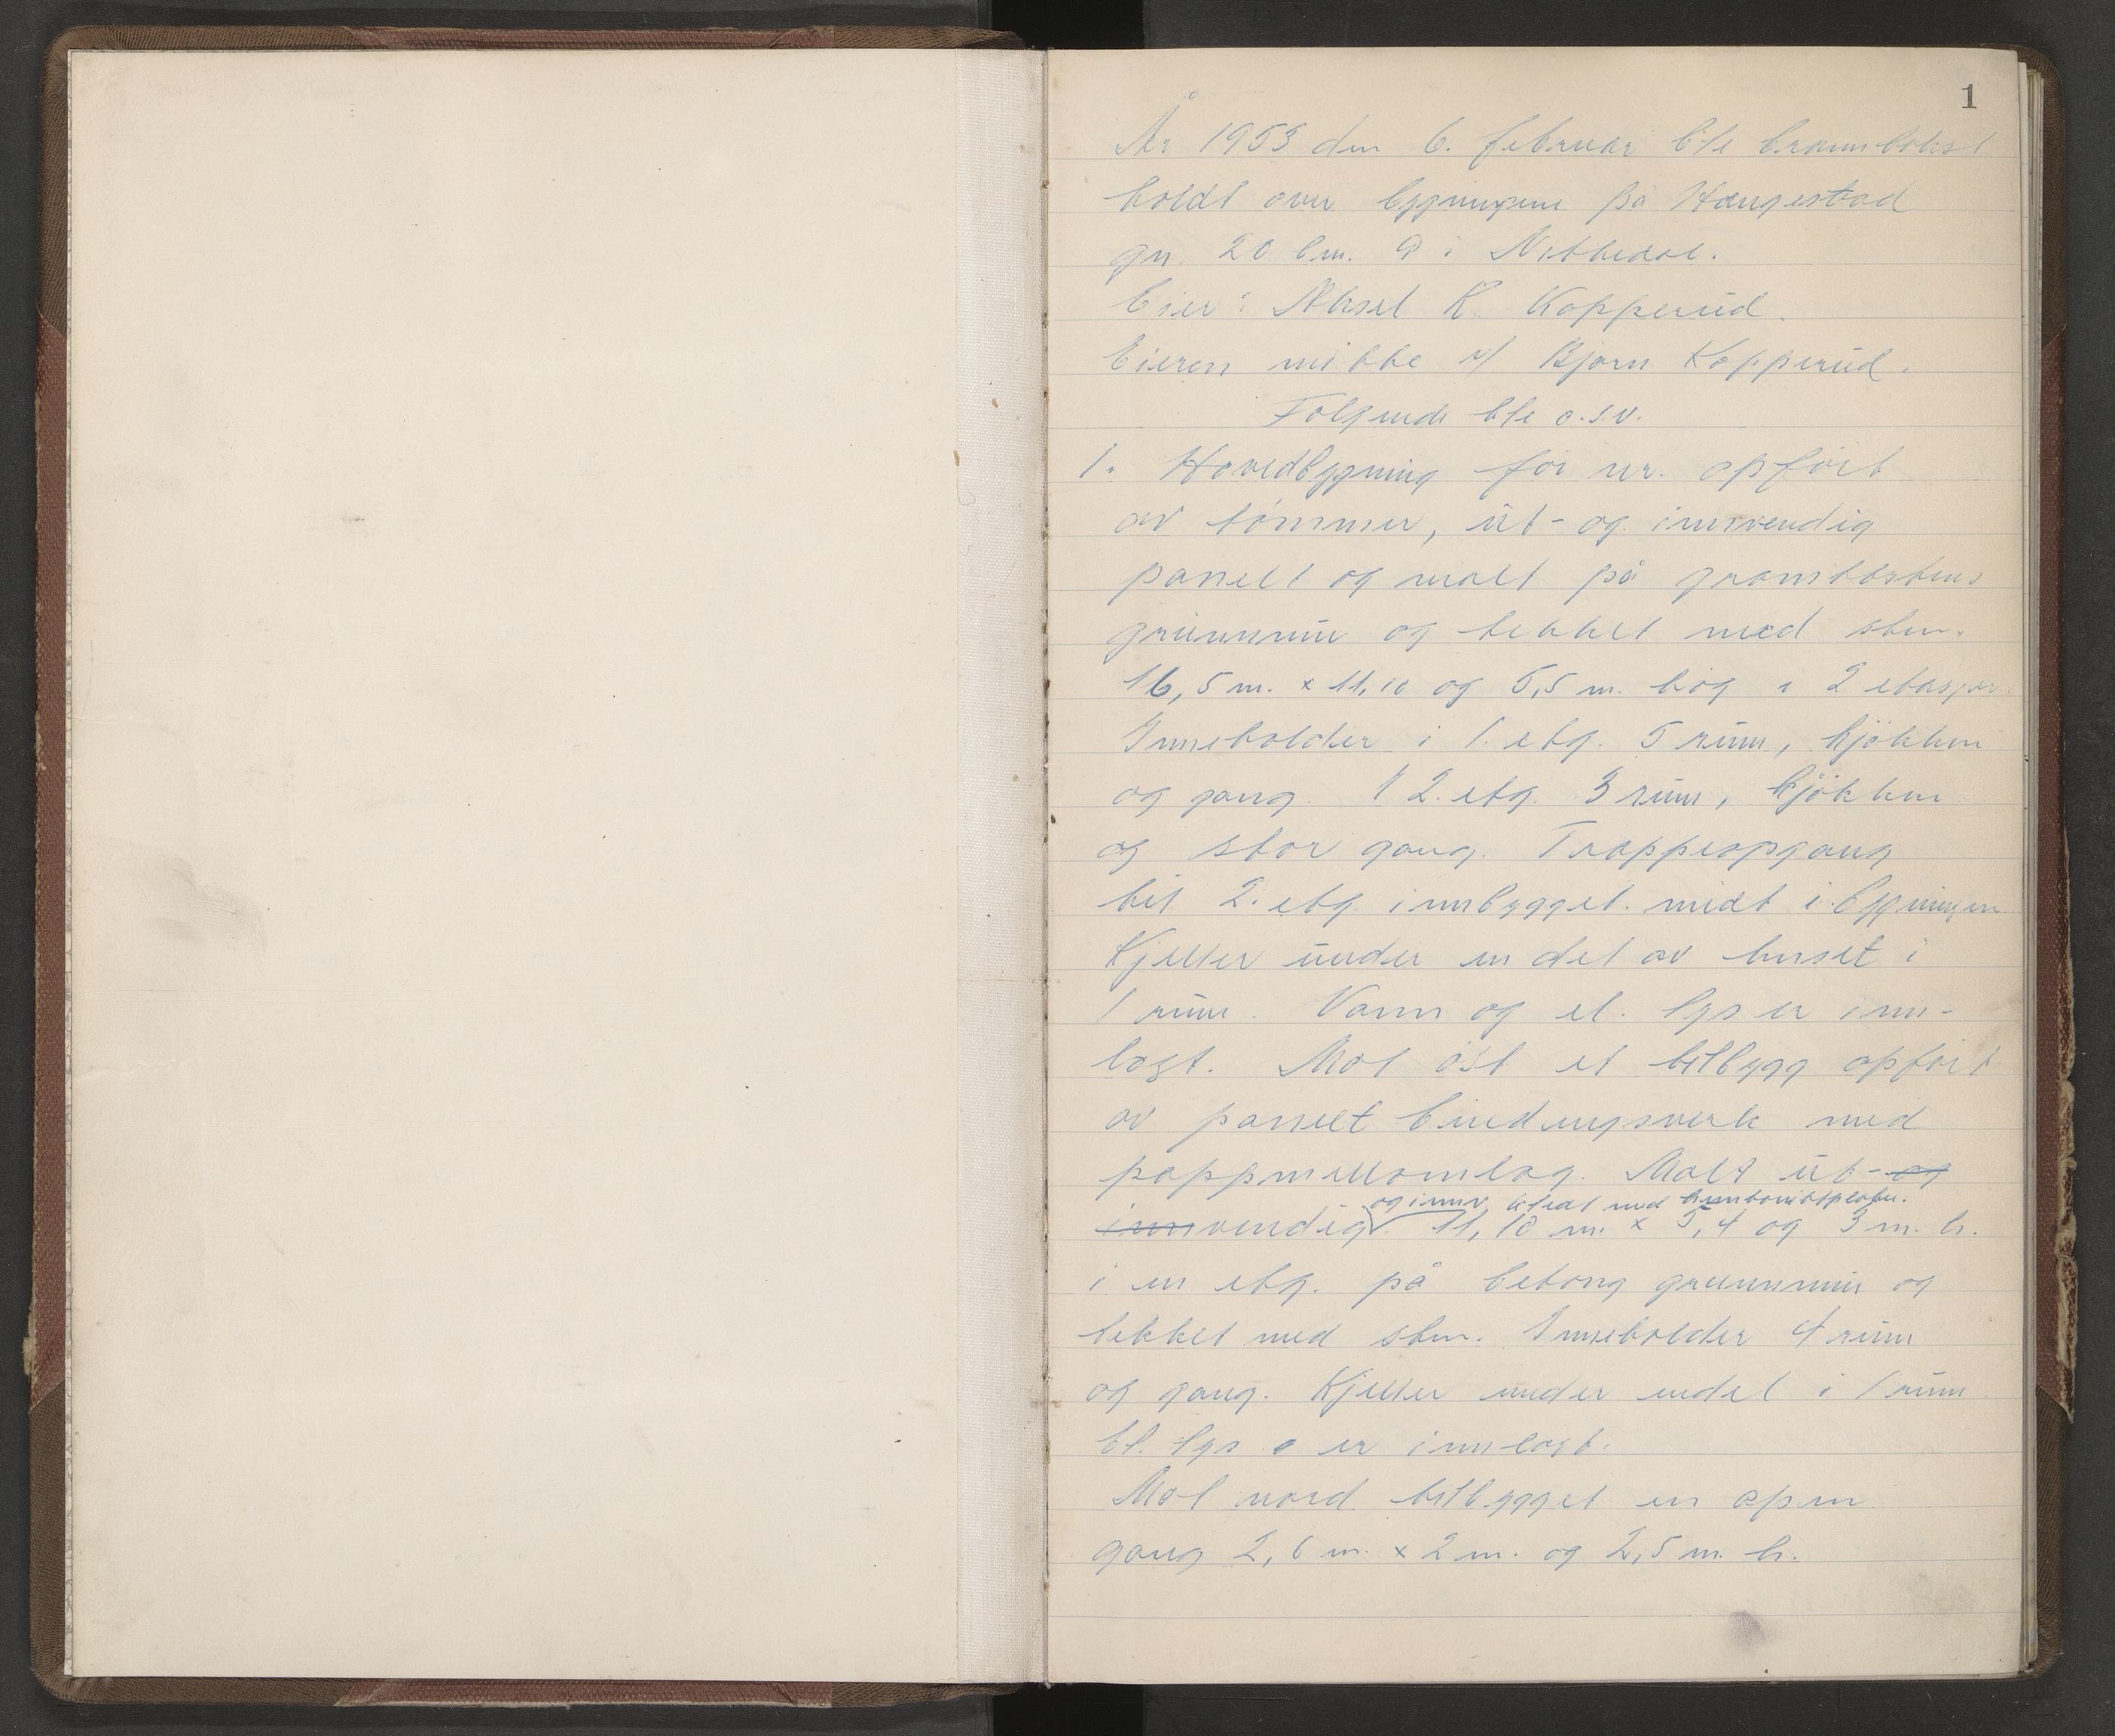 1
År 1953 den 6. februar ble brannbokst
holdt over bygningene på Haugestad
gn. 20 bn. 9 i Nittedal.
Eier: Aksel K. Kopperud.
Eieren møtte v/ Bjørn Kopperud.
Følgende ble o.s.v.
1. Hovedbygning før nr. opført
av tömmer, ut- og innvendig
panelt og malt på gråmblåstens
grunnmur og tekket med sten.
16,5 m. x 11,10 og 5,5 m. høg i 2 etasjer.
Inneholder i 1. etg. 5 rum, kjökken
og gang. I 2. etg. 3 rum, kjökken
og stor gang. Trappeopgang
til 2. etg. innbygget midt i bygningen
Kjeller under en del av huset i
1 rum. Vann og el. lys er inn-
lagt. Mot öst et tilbygg opfört
av panelt bindingsverk med
pappmellomlag. Malt ut- og
innvendig og innv. kledt med 11,10 m. x 5,4 og 3 m. h.
i en etg. på betong grunnmur og
tekket med sten. Inneholder 4 rum
og gang. Kjeller under endel i 1 rum
El. lys er innlagt.
Mot nord tilbygget en åpen
gang 2,6 m. x 2 m. og 2,5 m. h.